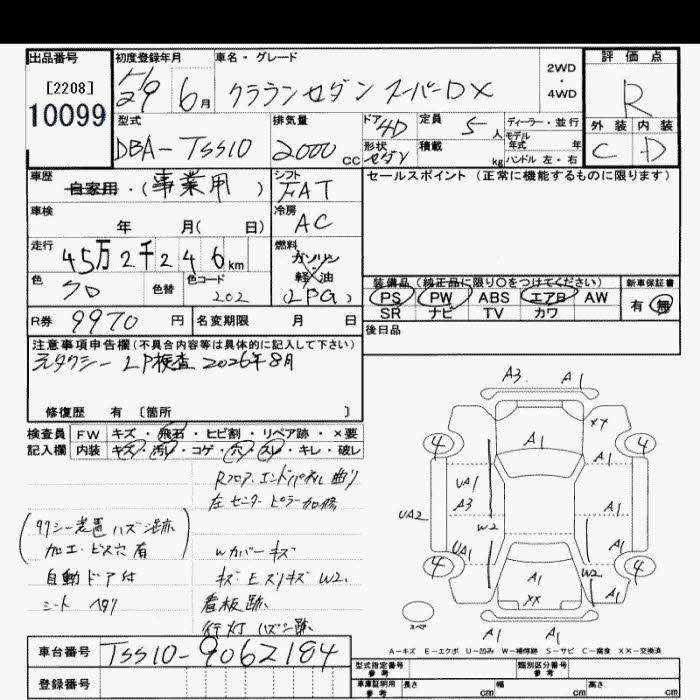 出品番号
[2208]
10099
初度登録年月
H
29年 6月
車名・グレード
クラウンセダン スーパーDX
2WD
・
4WD
評価点
R
外装 内装
C D
型式
DBA-TSS10
排気量
2000cc
ドア 4D
形状 セダン
定員 5人
積載 kg
ディーラー・並行
モデル
年式 年
ハンドル 左・右
車歴
自家用・(事業用)
シフト
FAT
セールスポイント (正常に機能するものに限ります)
車検
年 月( 日)
冷房
AC
走行
45万2千246km
燃料
ガソリン
軽油
(LPG)
色
クロ
色替
色コード
202
装備品 (純正品に限り○をつけてください)
PS PW ABS エアB AW
SR ナビ TV カワ
新車保証書
有・無
R券 9970円
名変期限 月 日
後日品
注意事項申告欄(不具合内容等は具体的に記入して下さい)
元タクシー LP検査 2026年8月
修復歴 有 〔箇所 〕
検査員
記入欄
FW キズ・飛石・ヒビ割・リペア跡・×要
内装 キズ・汚レ・コゲ・穴・スレ・キレ・破レ
Rフロア、エンドパネル曲り
左センターピラー加修
(タクシー装置ハズシ跡
加工・ビス穴有)
Wカバーキズ
自動ドア付
キズEズリキズW2、
シートヘタリ
看板跡、
行灯ハズシ跡
A3 A1
XX
4 A1 4
A1
UA1
A3 A1
UA2 W2
UA1 A1
4 A1 W2 4
XX A1
スペア
A1 A1
A-キズ E-エクボ U-凹み W-補修跡 S-サビ C-腐食 XX-交換済
車台番号 TSS10-9062184
登録番号
型式指定番号
参考
類別区分番号
参考
車庫証明用
参考
長さ cm 幅 cm 高さ cm